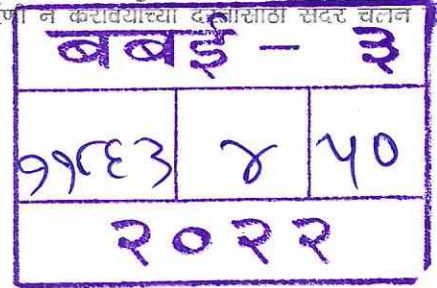 णी न करावयाच्या दस्तासाठी सदर चलन
बबई - ३
११८६३ ४ ५०
२०२२